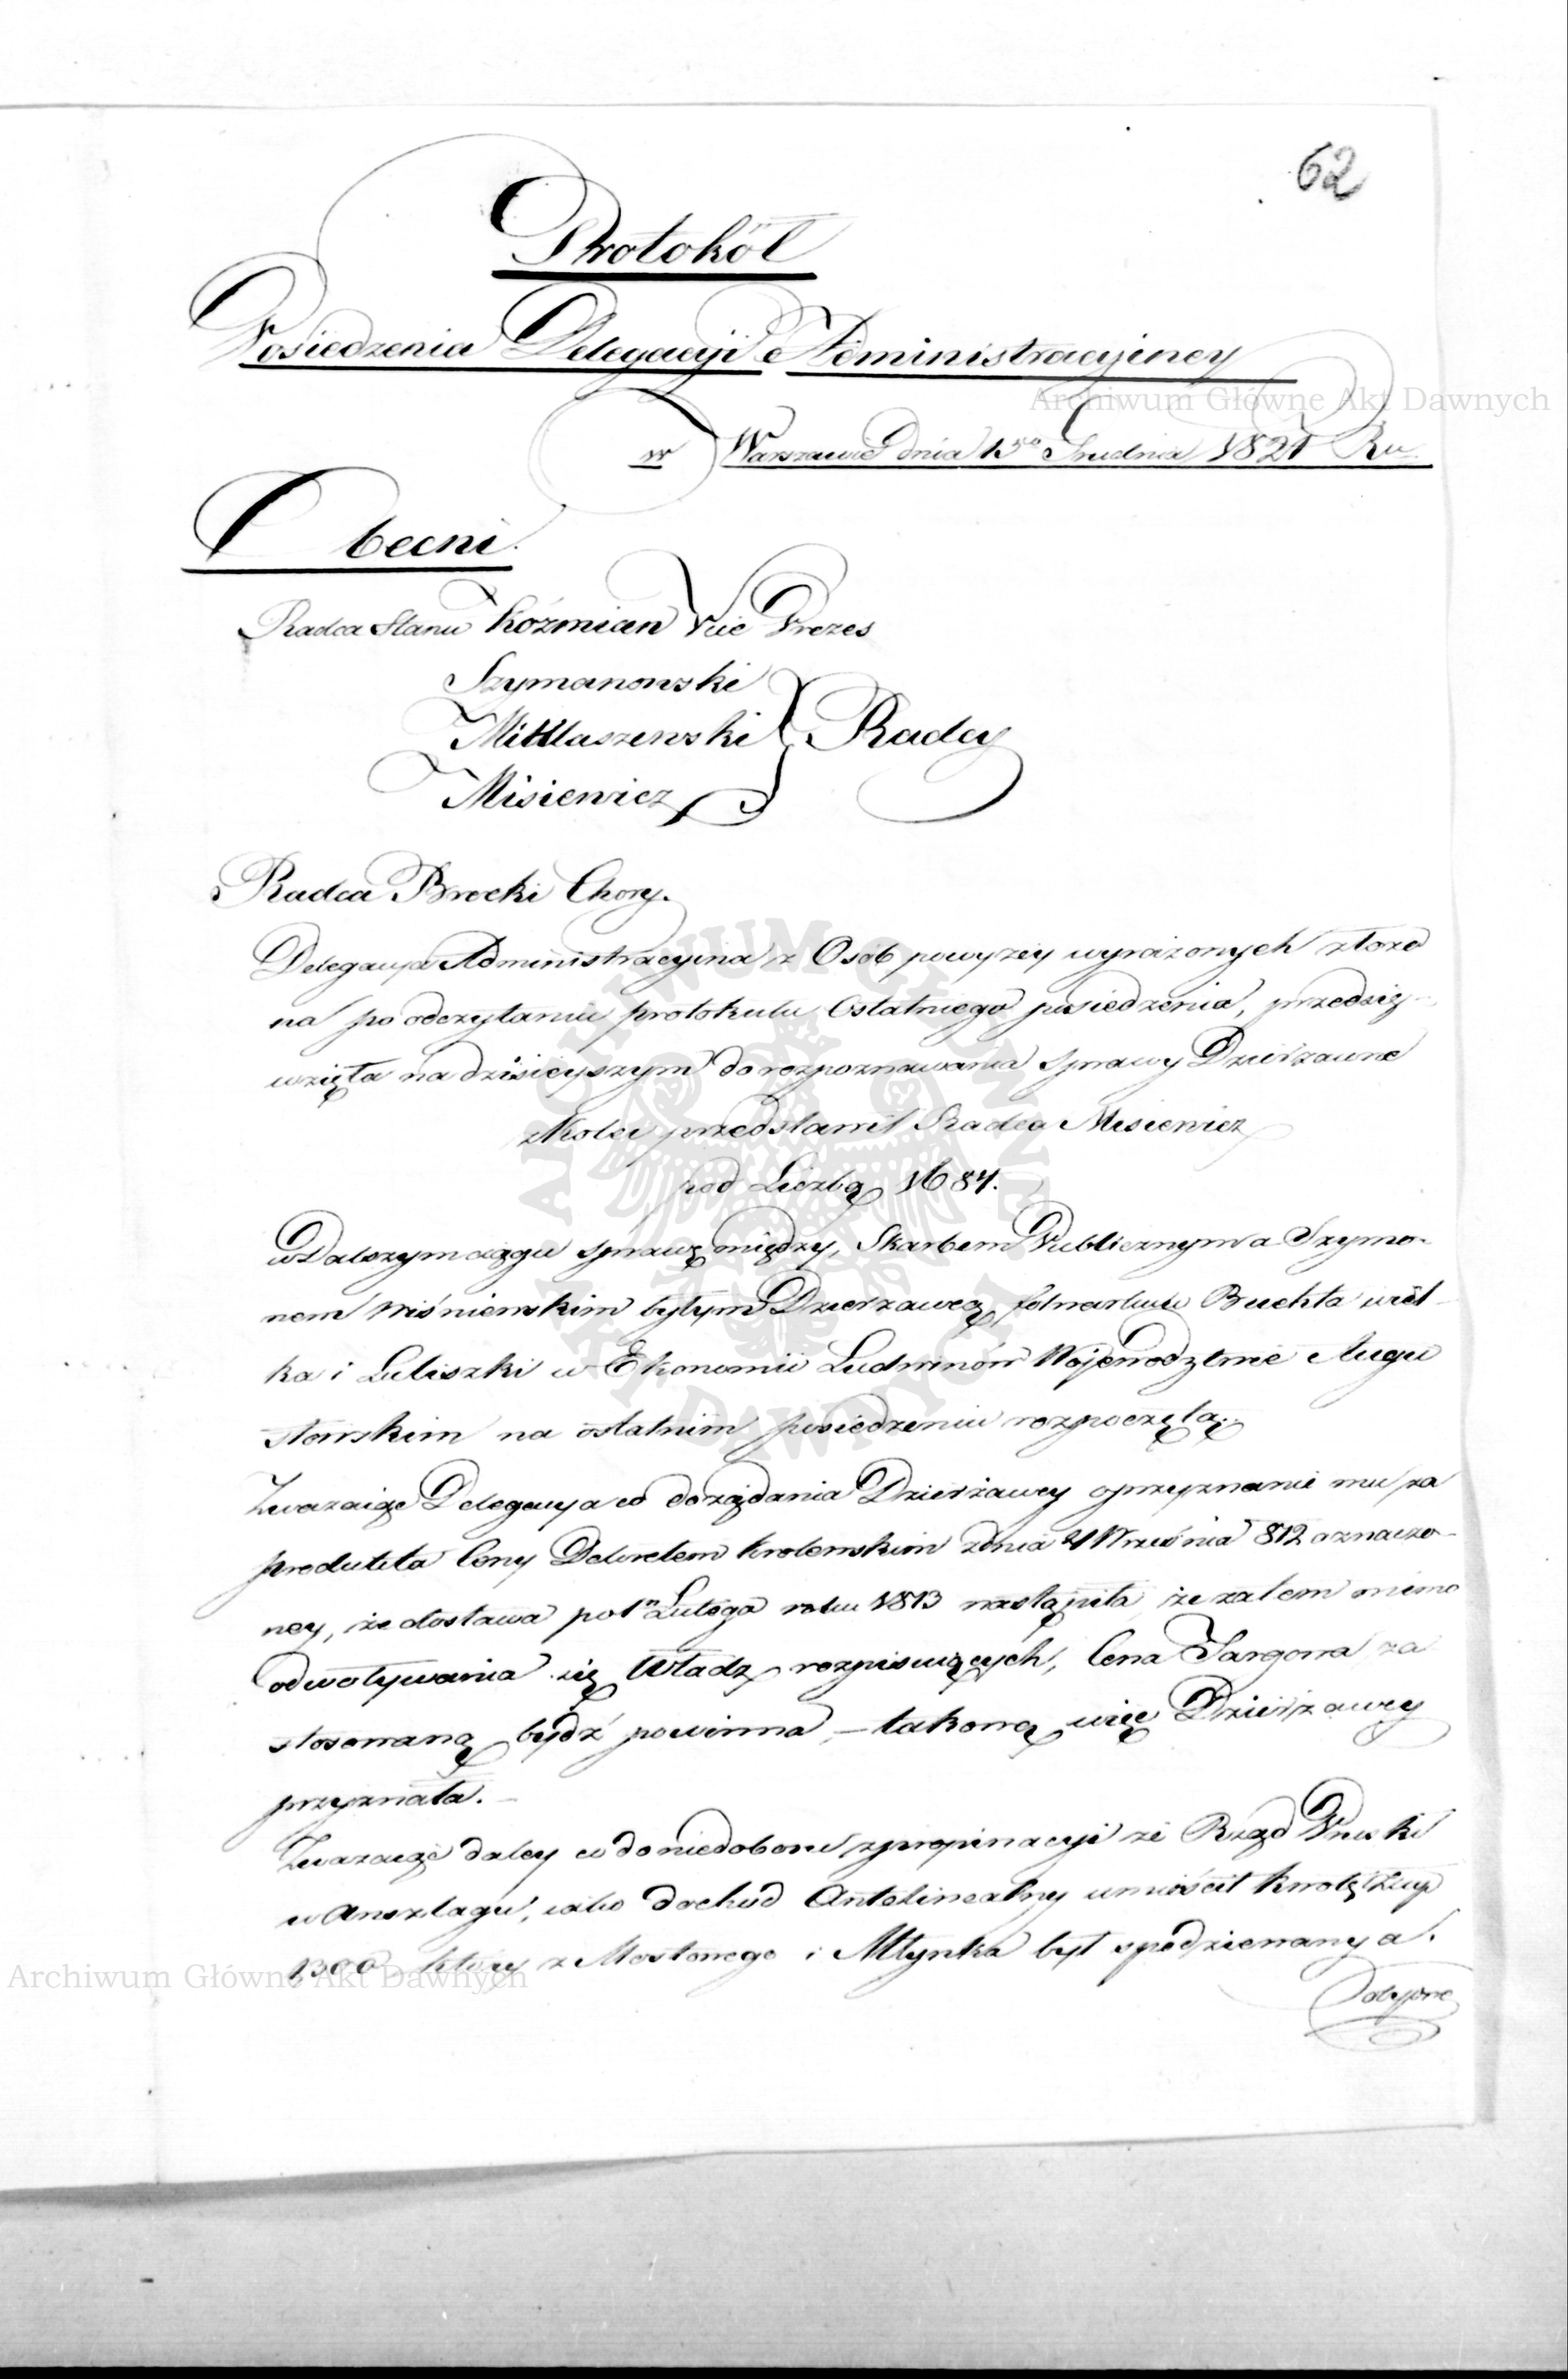 62
Protokół
Posiedzenia Delegacyi Administracyiney
w Warszawie dnia 15go Grudnia 1821 Ru.
Obecni.
Radca Stanu Koźmian Vice Prezes
Szymanowski
Mittlaszewski } Radcy
Misiewicz
Radca Brocki Chory.
Delegacya Administracyina z Osób powyżey wyrażonych złożo
na po odczytaniu protokułu Ostatniego posiedzenia, przedsię-
wzięła na dzisieyszym do rozpoznawania sprawy Dzierżawne
z kolei przedstawił Radca Misiewicz
pod Liczbą 1684.
w Dalszym ciągu sprawę między, Skarbem Publicznym a Szymo-
nem Wiśniewskim byłym Dzierżawcą folwarków Buchta wiel-
ka i Luliszki w Ekonomii Ludwinów Wojewodztwie Augu
stowskim na ostatnim posiedzeniu rozpoczętą.
Zważaiąc Delegacya co do żądania Dzierżawcy o przyznanie mu za
produkta Ceny Dekretem Krolewskim z dnia 4 Września 812 oznaczo-
ney, że dostawa po 1n Lutego roku 1813 nastąpiła, że zatem mimo
odwoływania się Władz rozpisuiących, Cena Targowa za
stosowaną bydź powinna, - takową więc Dzierżawcy
przyznała. -
Zważaiąc daley co do niedoboru z propinacyi że Rząd Pruski
w Anszlagu, iako dochod Antelinealny umieścił kwotę
1300 który z Mostowego i Młynka był spodziewany a.
Archiwum Główne Akt Dawnych
Archiwum Główne Akt Dawnych
ARCHIWUM GŁÓWNE AKT DAWNYCH